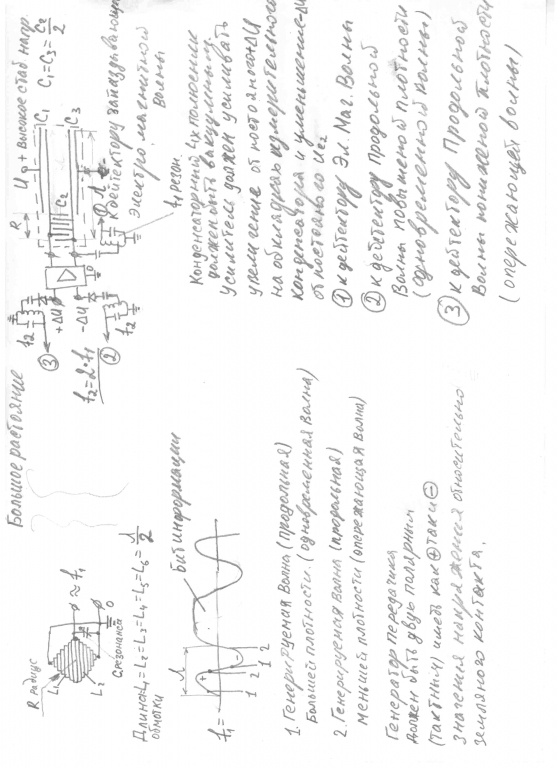 Большое растояние
R радиус
L1
L2
C резонанса
≈ f1
0
Длина L1 = L2 = L3 = L4 = L5 = L6 = λ/2
обмотки
f1 =
λ
Бит информации
+
-
1 2 1 2
1. Генерируемая Волна (продольная)
большей плотности. (одновременная волна)
2. Генерируемая волна (продольная)
меньшей плотности (опережающая волна)
Генератор передатчика
должен быть двух полярным
(тактным) иметь как ⊕ так и ⊖
значения напряжения относительно
земляного контакта.
U0 + высокое стаб. напр.
C1 = C3 = C2/2
R
C1
C2
C3
λ
① к дейтектору запаздывающей
электро. магнитной
волны
f1 резон.
+ΔU
-ΔU
0
f2
f2
③
②
f2 = 2·f1
Конденсаторный 4х полюсник
должен быть вакуумным.
Усилитель должен усиливать
увеличение от постоянного +ΔU
на обкладках измерительного
конденсатора и уменьшение -ΔU
от постояного Uc2
① к дейтектору Эл. Маг. Волны
② к дейтектору Продольной
Волны повышеной плотности
(одновременной волны)
③ к дейтектору Продольной
Волны пониженой плотности
(опережающей волны)